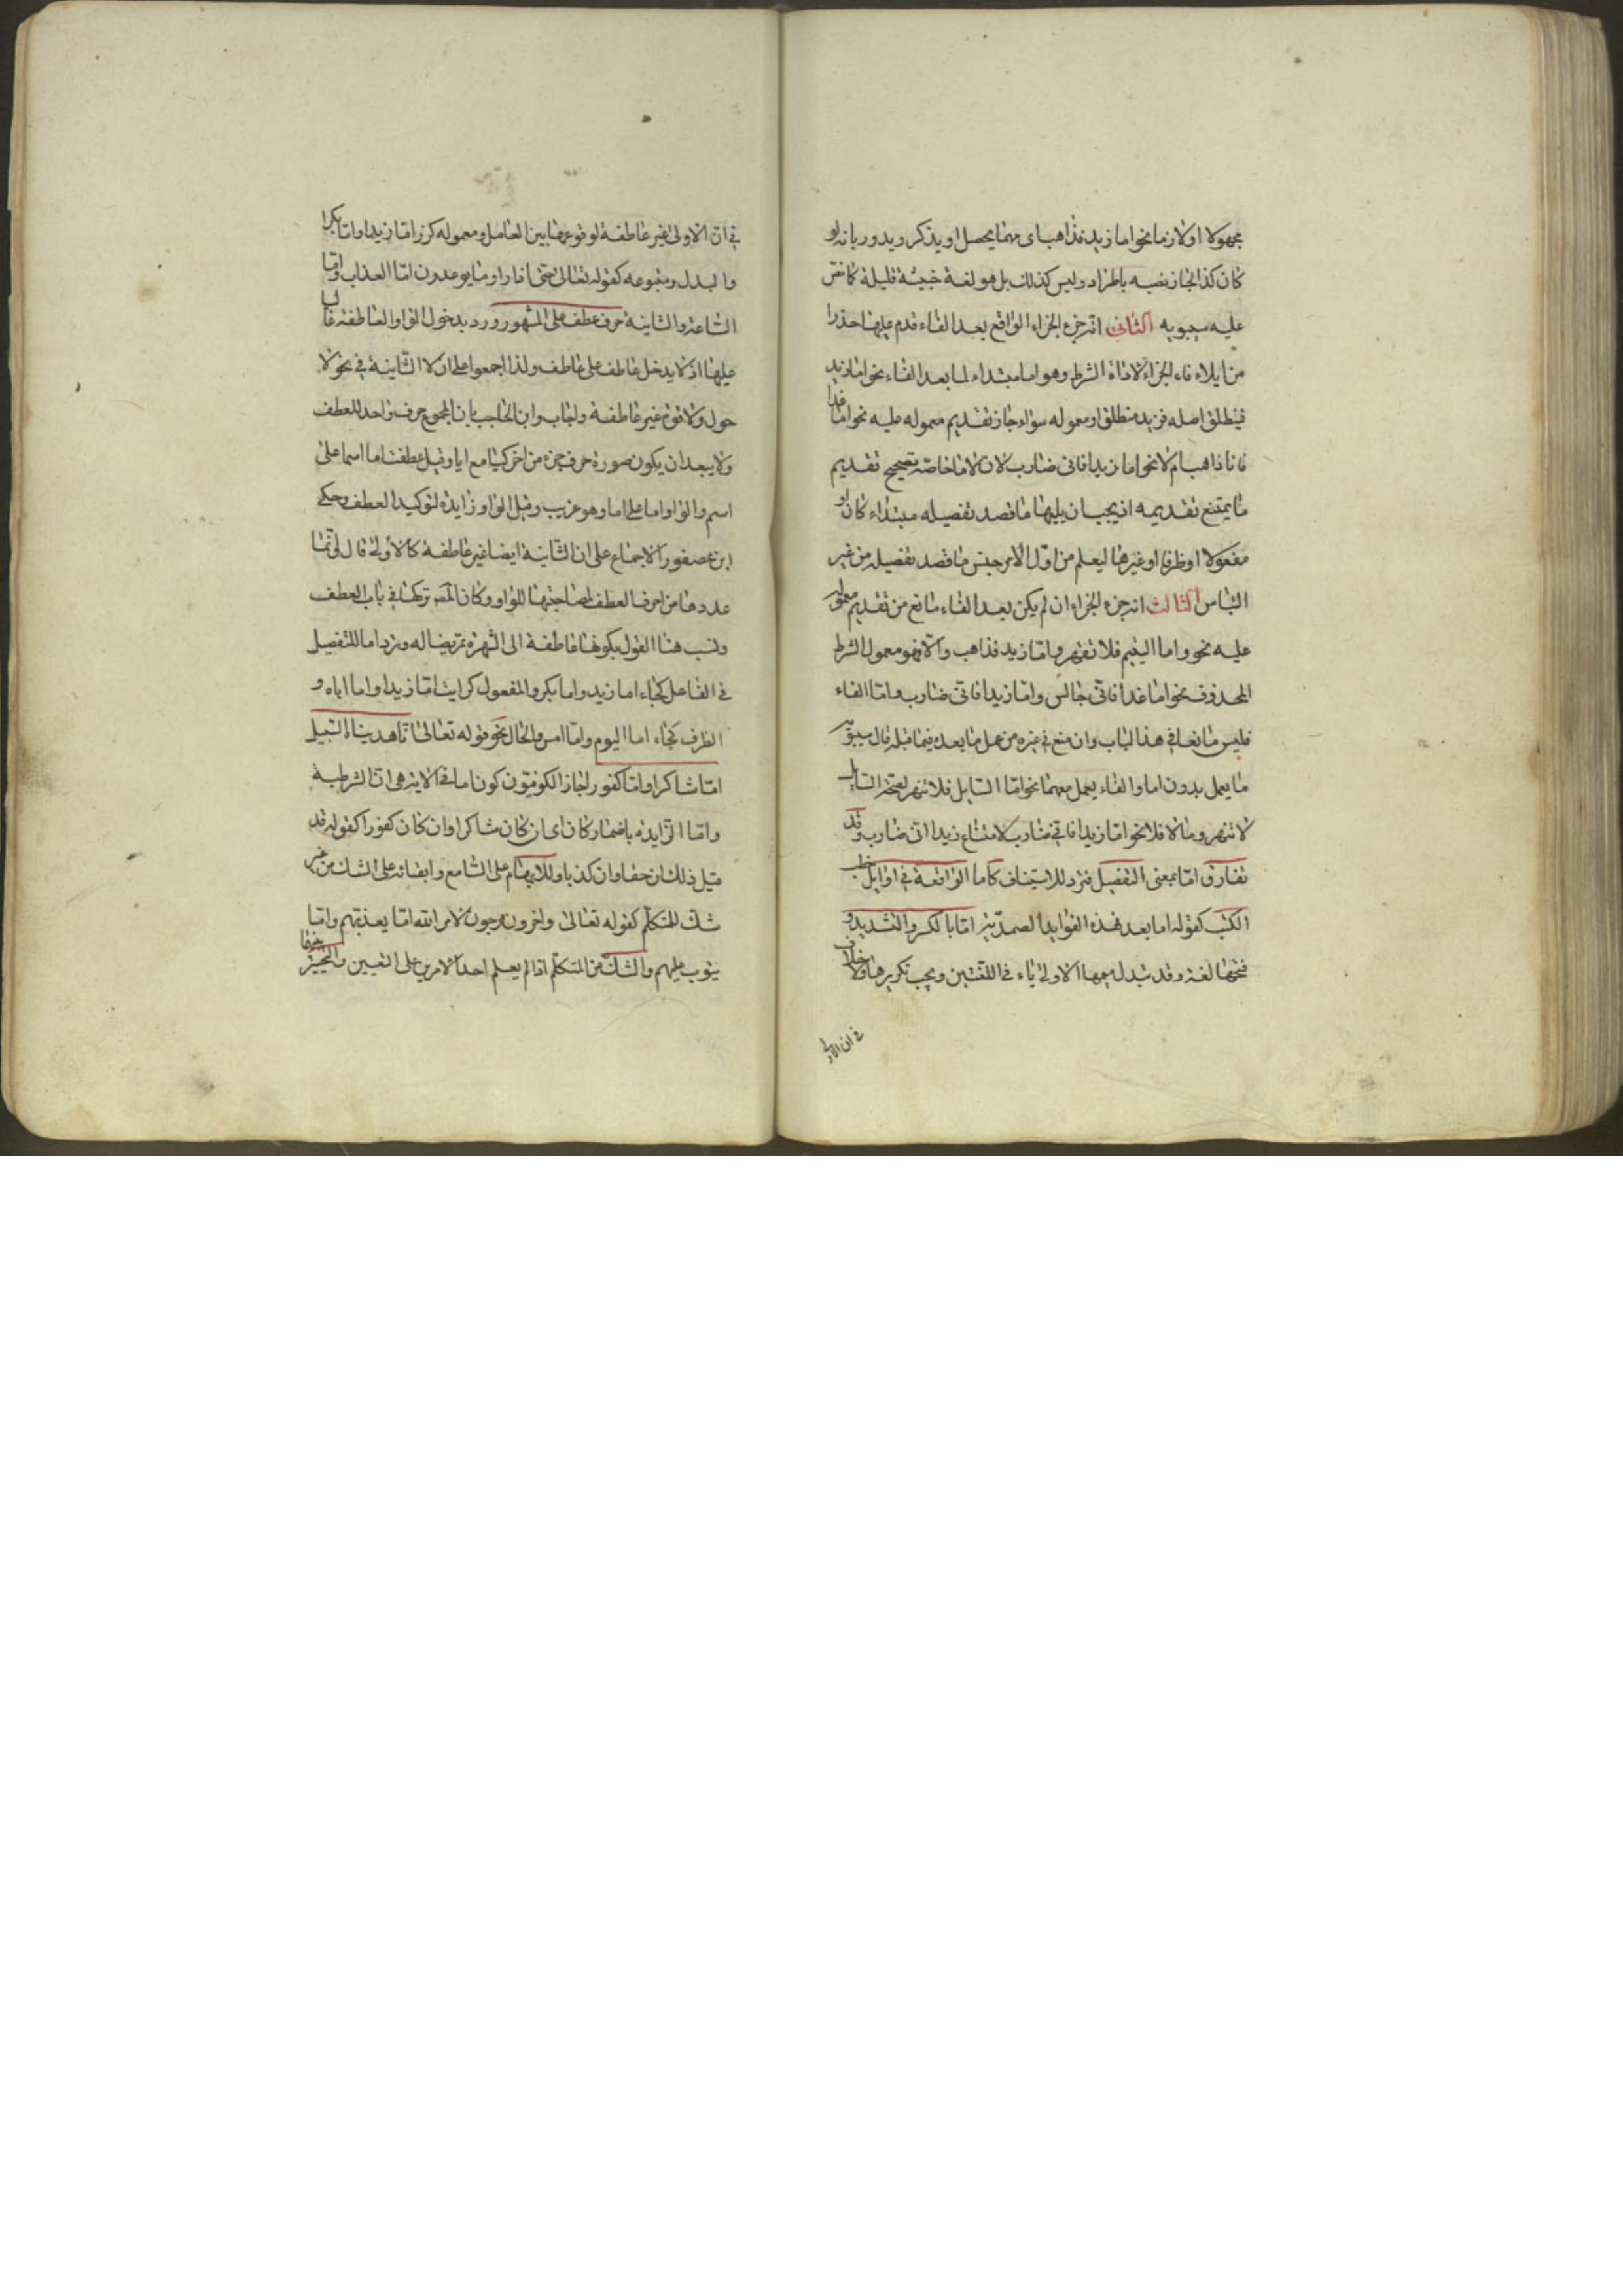 مجهولا او لازما نحو اما زيد فذاهب اى مهما يحصل او يذكر ويدور بانه لو
كان كذا لجاز نصبه باطراد وليس كذلك بل هو لغة خبيثة قليلة كما نص
عليه سيبويه الثانى انه جزء الجزاء الواقع بعد الفاء قدم عليها حذرا
من ايلاء فاء الجزاء لاداة الشرط وهو اما مبتداء لما بعد الفاء نحو اما زيد
فينطلق اصله فزيد منطلق او معموله سواء جاز تقديم معموله عليه نحو اما غدا
فانا ذاهب ام لا نحو اما زيدا فانى ضارب لان لاما خاصة تصحيح تقديم
ما يمتنع تقديمه اذ يجب ان يليها ما قصد تفصيله مبتداء كان او
مفعولا او ظرفا او غيرها ليعلم من اول الامر جنس ما قصد تفصيله من غير
التباس الثالث انه جزء الجزاء ان لم يكن بعد الفاء مانع من تقديم معمول
عليه نحو واما اليتيم فلا تقهر واما زيد فذاهب والا فهو معمول الشرط
المحذوف نحو اما غدا فانى جالس واما زيدا فانى ضارب واما الفاء
فليس مانعا فى هذا الباب وان منع فى غيره من عمل ما بعده فيما قبله قال سيبويه
ما يعمل بدون اما والفاء يعمل معهما نحو اما السايل فلا تنهر لصحة السايل
لا تنهر وما لا فلا نحو اما زيدا فانى ضارب لامتناع زيدا انى ضارب وقد
تفارق اما بمعنى التفصيل فترد للاستيناف كاما الواقعة فى اوايل خطب
الكتب كقوله اما بعد فهذه الفوايد الصمدية اما بالكسر والتشديد و
فتحها لغة وقد تبدل ميمها الاولى ياء فى اللغتين ويجب تكريرها ولا خلاف
فى ان الاولى
فى ان الاولى غير عاطفة لوقوعها بين العامل ومعموله كزر اما زيدا واما بكرا
والبدل ومتبوعه كقوله تعالى حتى اذا راوا ما يوعدون اما العذاب واما
الساعة والثانية حرف عطف على المشهور ورد بدخول الواو العاطفة غالبا
عليها اذ لا يدخل عاطف على عاطف ولذا اجمعوا على ان لا الثانية فى نحو لا
حول ولا قوة غير عاطفة واجاب وابن الحاجب بان المجموع حرف واحد للعطف
ولا يبعد ان يكون صورة حرف جزء من اخر كيا مع ايا وقيل عطفت اما اسما على
اسم والواو اما على اما وهو غريب وقيل الواو زايدة لتوكيد العطف وحكى
ابن عصفور الاجماع على ان الثانية ايضا غير عاطفة كالأولى قال وانما
عددها من احرف العطف لمصاحبتها للواو وكان المصـ تركها فى باب العطف
ونسب هنا القول بكونها عاطفة الى الشهرة تمريضا له وترد اما للتفصيل
فى الفاعل كجاء اما زيد واما بكر والمفعول كرايت اما زيدا واما اباه و
الظرف كجاء اما اليوم واما امس والحال نحو قوله تعالى انا هديناه السبيل
اما شاكرا واما كفورا جاز الكوفيون كون اما فى الاية هى ان الشرطية
واما الزايدة باضمار كان اى ان كان شاكرا وان كان كفورا كقوله قد
قيل ذلك ان حقا وان كذبا وللابهام على السامع وابقائه على الشك من غير
شك للمتكلم كقوله تعالى واخرون مرجون لامر الله اما يعذبهم واما
يتوب عليهم والشك من المتكلم اذا لم يعلم احد الامرين على التعيين والتخيير